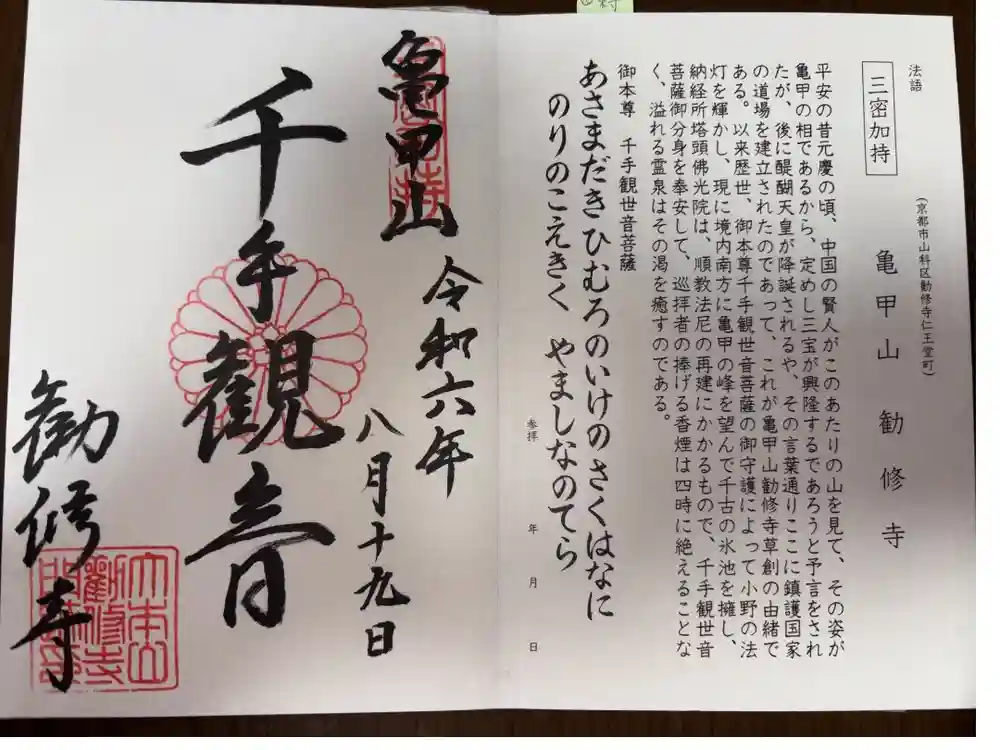 法語
三密加持
(京都市山科区勧修寺仁王堂町)
亀甲山 勧修寺
平安の昔元慶の頃、中国の賢人がこのあたりの山を見て、その姿が
亀甲の相であるから、定めし三宝が興隆するであろうと予言をされ
たが、後に醍醐天皇が降誕されるや、その言葉通りここに鎮護国家
の道場を建立されたのであって、これが亀甲山勧修寺草創の由緒で
ある。以来歴世、御本尊千手観世音菩薩の御守護によって小野の法
灯を輝かし、現に境内南方に亀甲の峰を望んで千古の氷池を擁し、
納経所塔頭佛光院は、順教法尼の再建にかかるもので、千手観世音
菩薩御分身を奉安して、巡拝者の捧げる香煙は四時に絶えることな
く、溢れる霊泉はその渇を癒すのである。
御本尊 千手観世音菩薩
あさまだきひむろのいけのさくはなに
のりのこえきく やましなのてら
参拝 年 月 日
亀甲山
令和六年
八月十九日
千手観音
勧修寺
大本山
勸修寺